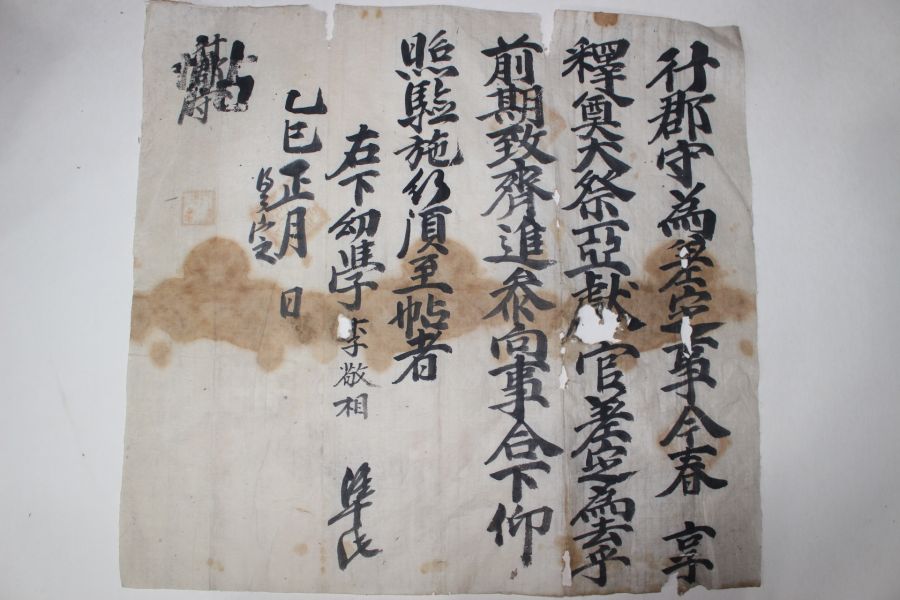 行郡守為差定事今春 享
釋奠大祭亞獻官差定為去乎
前期致齊進參向事合下仰
照驗施行須至帖者
右下幼學李敬相 準此
乙巳正月 日
差定
帖